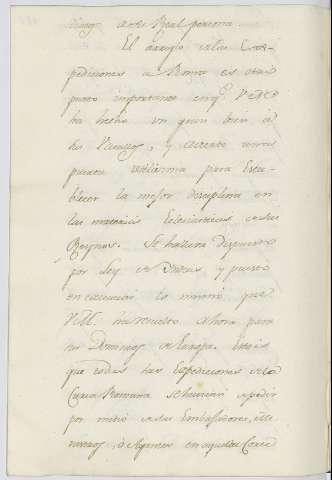 Real persona
El arreglo de las Ex-
pediciones a Roma es otro
punto importante en qe. V. M.
ha hecho un gran bien á
sus Vasallos, y abierto una
puerta utilisima para Esta-
blecer la mejor disciplina en
las materias Eclesiasticas de sus
Reynos. Se hallava dispuesto
por Ley de Indias, y puesto
en execucion lo mismo que
V. M. ha resuelto ahora para
sus Dominios de Europa. Esto es
que todas las Expediciones de la
Curia Romana se havian de pedir
por medio de sus Embaxadores, Mi-
nistros, ó Agentes en aquella Corte